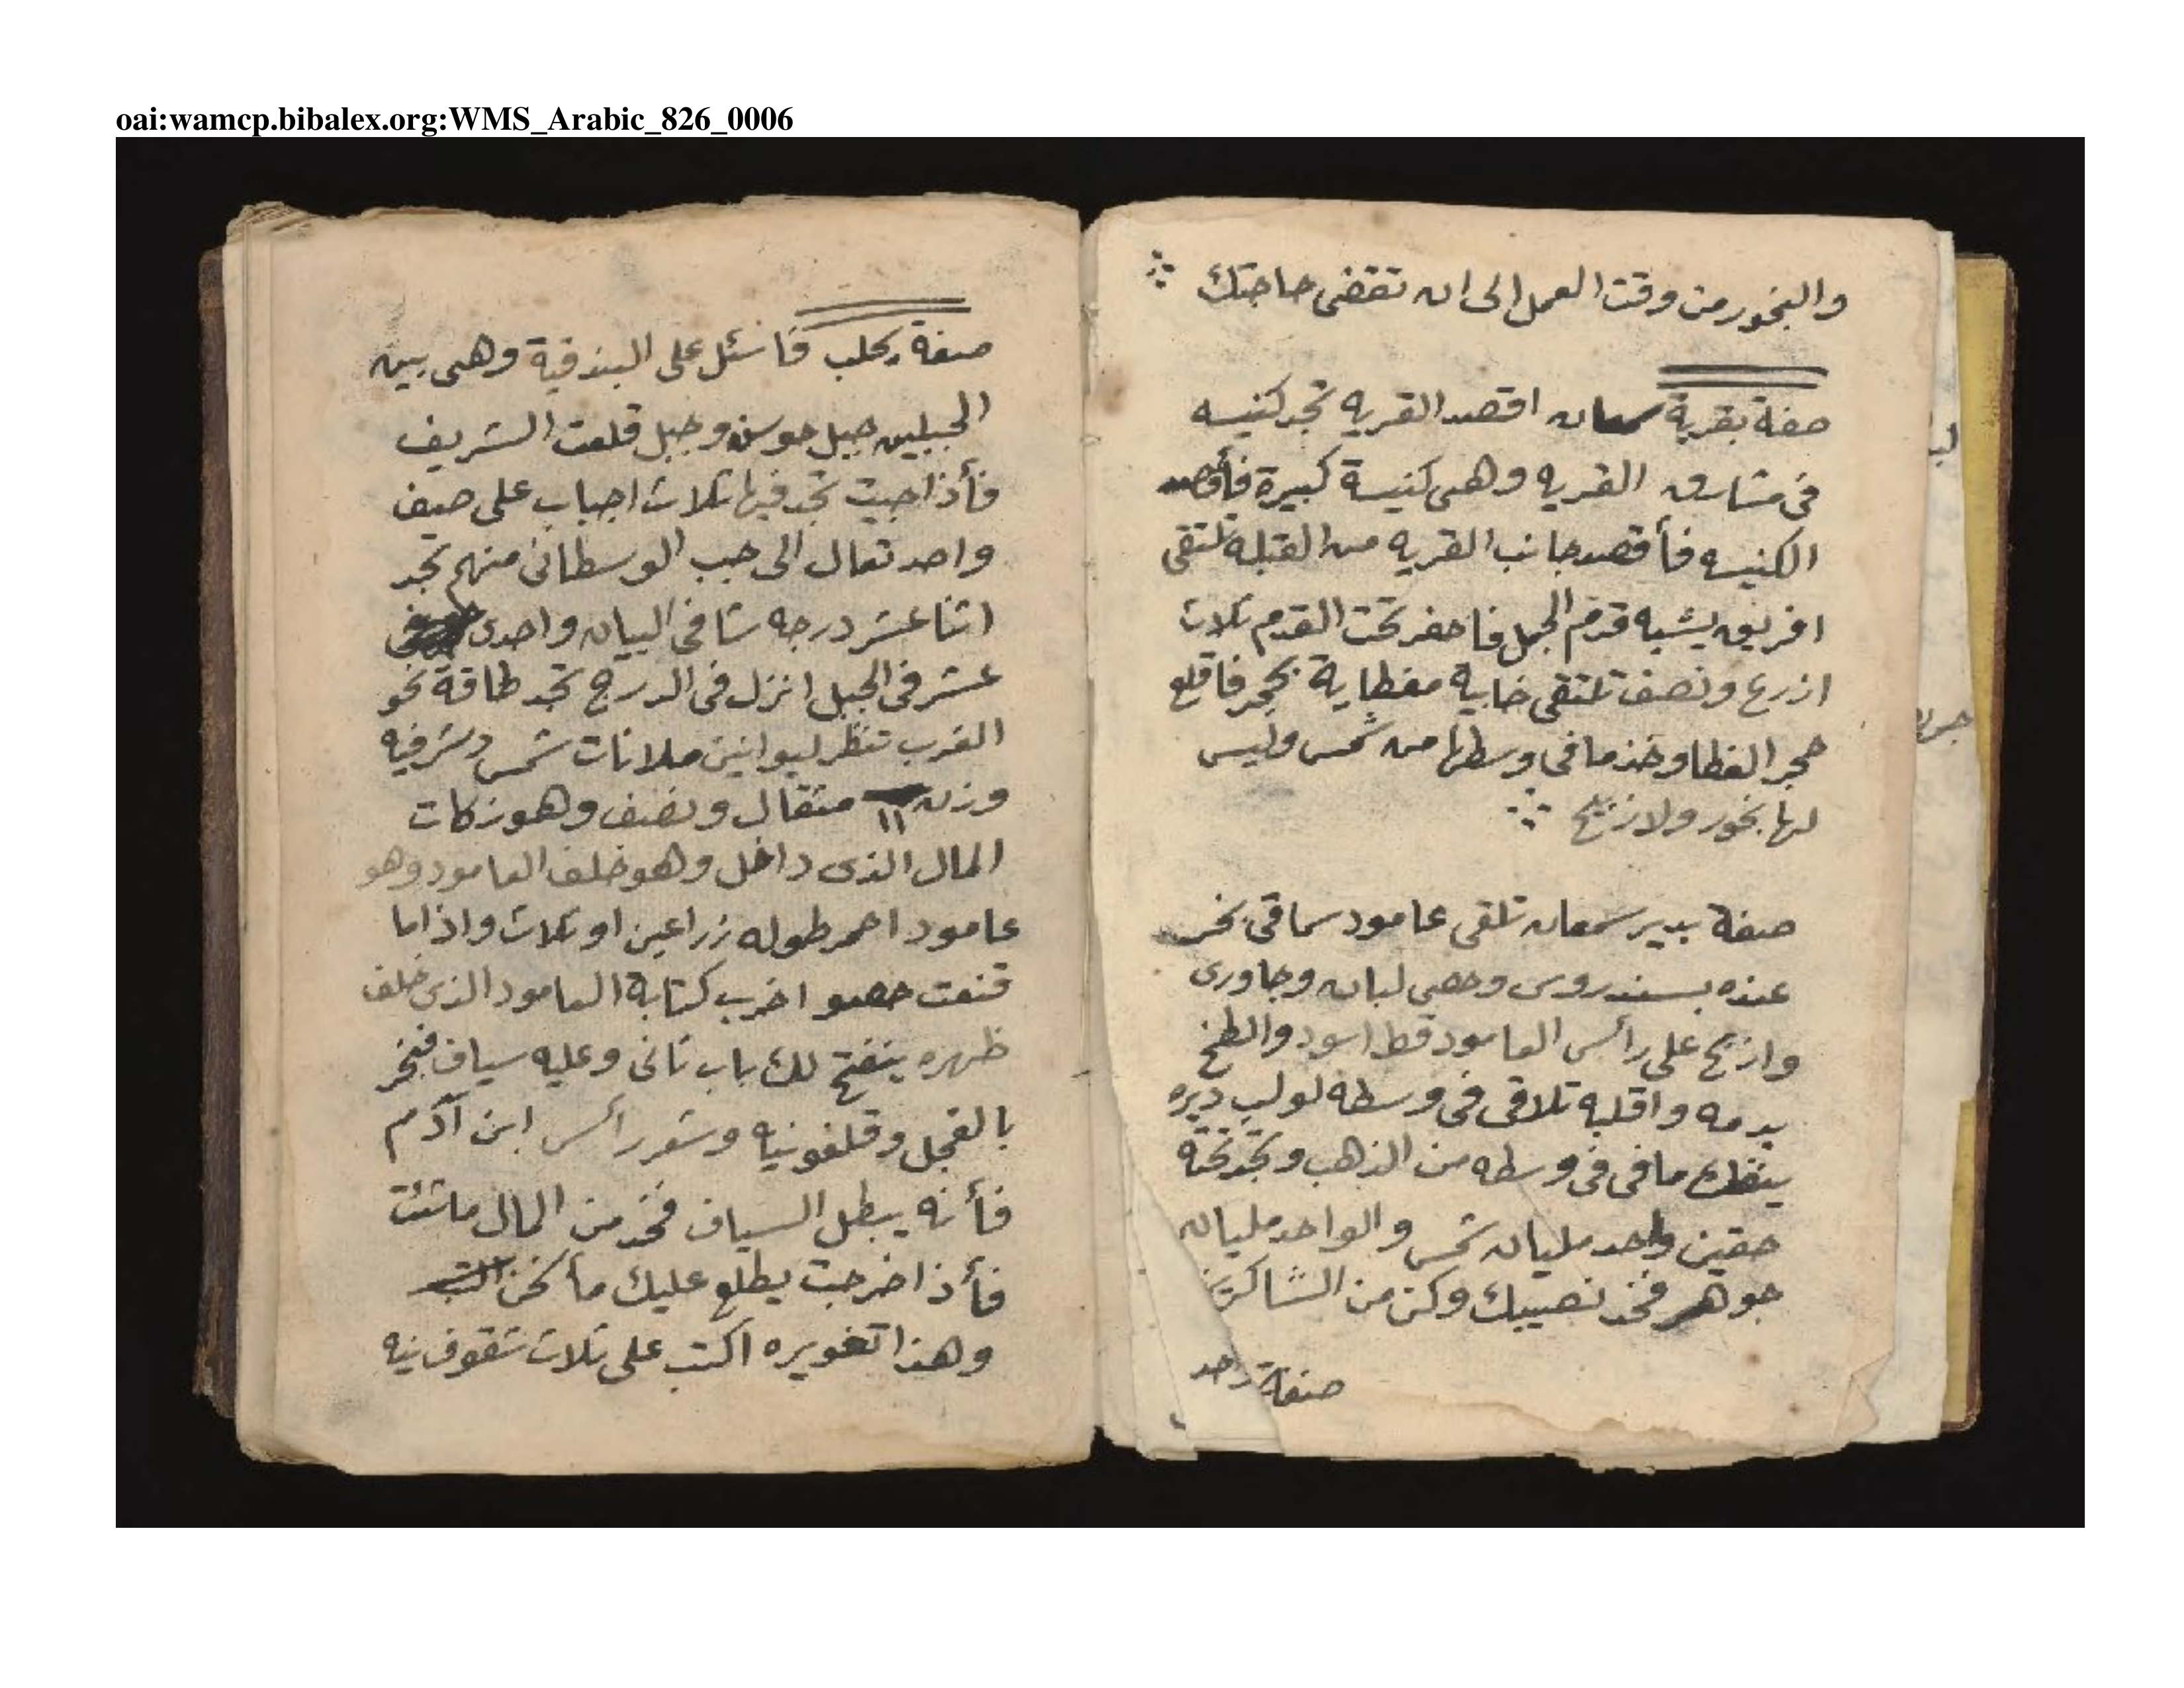 oai:wamcp.bibalex.org:WMS_Arabic_826_0006
والبخور من وقت العمل الى ان تقضى حاجتك
صفة بقرية سمعان اقصد القريه تجد كنيسه
فى مشارق القريه وهى كنيسة كبيرة فأقصد
الكنيسه فأقصد جانب القريه من القبله تلتقى
افريق يشبه قدم الجبل فاحفر تحت القدم تلات
ازرع ونصف تلتقى خابية مغطاية بحجر فاقلع
حجر الغطا وخذ ما فى وسطها من شمس وليس
لها بخور ولا زبح
صفة بدير سمعان تلقى عامود سماقى بخر
عنده بسندروس وحصى لبان وجاورى
وازبح على رأس العامود قط اسود والطخ
بدمه واقلبه تلاقى فى وسطه لولب ديره
ينقلع ما فى فى وسطه من الذهب وتجد تحته
حقين واحد مليان شمس والواحد مليان
جوهر فخذ نصيبك وكن من الشاكرين
صفة
صفة بحلب فاسئل على البندقية وهى بين
الجبلين جبل جوسن وجبل قلعت الشريف
فأذا جيت تجد فيها تلات اجباب على صيف
واحد تعال الى جب الوسطانى منهم تجد
اتنا عشر درجه شافى البيان واحدى
عشر فى الجبل انزل فى الدرج تجد طاقة نحو
الغرب تنظر ليوانين ملانات شمس
وزن ١١ متقال ونصف وهو زكات
المال الذى داخل وهو خلف العامود وهو
عامود احمر طوله زراعين او تلات واذا ما
قنعت اخرب كتابة العامود الذى خلف
ظهره ينفتح لك باب تانى وعليه سياف فبخر
بالفجل وقلفونيه وشعر رأس ابن آدم
فأنه يبطل السياف فخذ من المال ما شئت
فأذا خرجت يطلع عليك مأ نحن
وهذا تغويره اكتب على تلات شقوف نيه